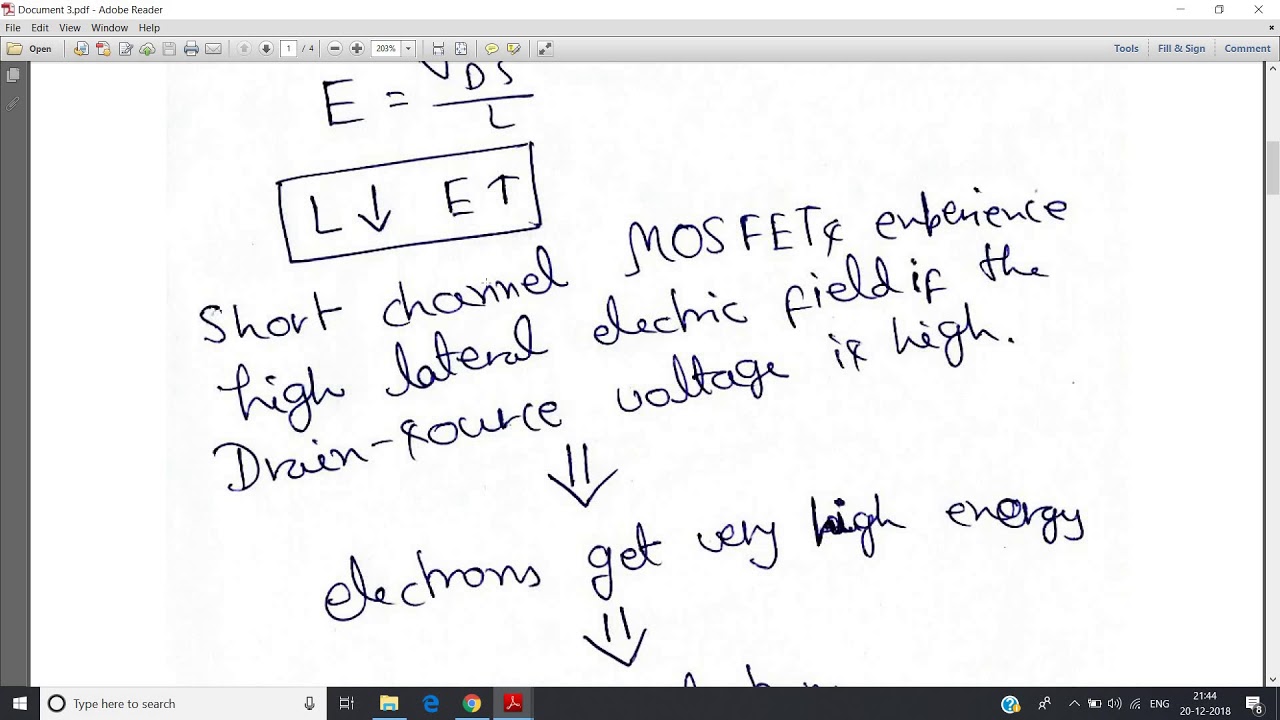 Document 3.pdf - Adobe Reader
File Edit View Window Help
Open 1 / 4 203% Tools Fill & Sign Comment
E = VDS
L
L ↓ E ↑
Short channel MOSFETs experience
high lateral electric field if the
Drain-source voltage is high.
⇓
electrons get very high energy
⇓
Type here to search
21:44
20-12-2018
8